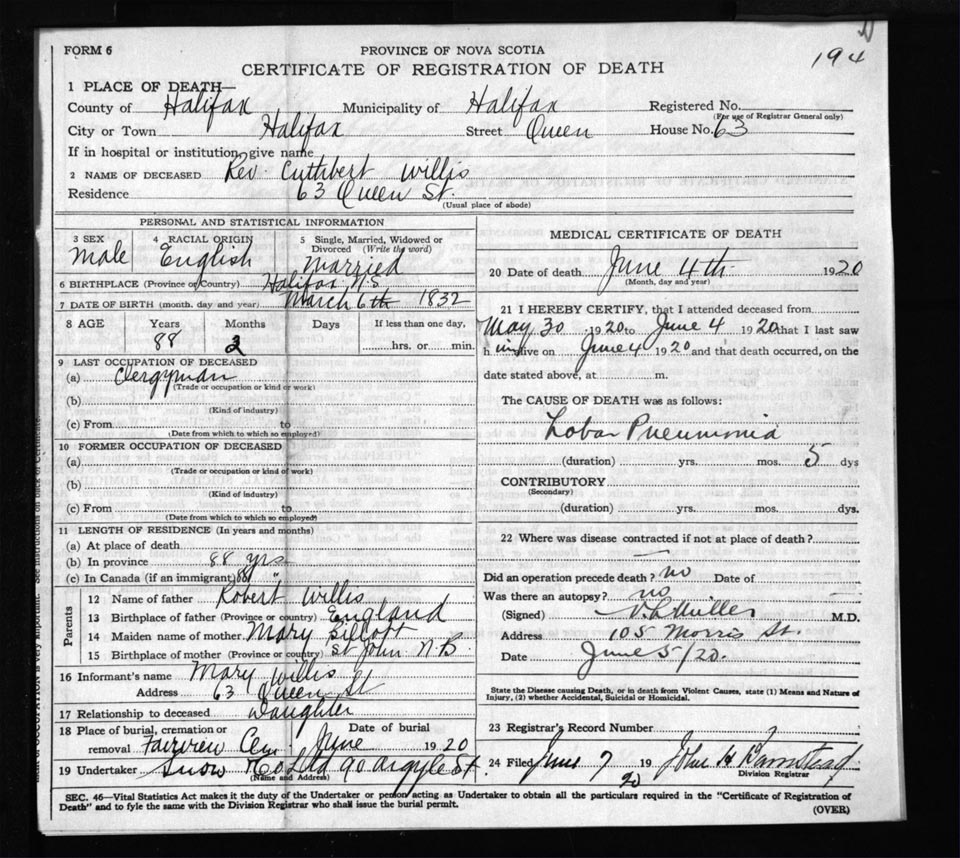 194
FORM 6
PROVINCE OF NOVA SCOTIA
CERTIFICATE OF REGISTRATION OF DEATH
1 PLACE OF DEATH—
County of Halifax Municipality of Halifax Registered No.
(For use of Registrar General only)
City or Town Halifax Street Queen House No. 63
If in hospital or institution, give name
2 NAME OF DECEASED Rev. Cuthbert Willis
Residence 63 Queen St.
(Usual place of abode)
PERSONAL AND STATISTICAL INFORMATION
3 SEX Male
4 RACIAL ORIGIN English
5 Single, Married, Widowed or Divorced (Write the word) Married
6 BIRTHPLACE (Province or Country) Halifax N.S
7 DATE OF BIRTH (month, day and year) March 6th 1832
8 AGE Years Months Days If less than one day,
88 2 hrs. or min.
9 LAST OCCUPATION OF DECEASED
(a) Clergyman
(Trade or occupation or kind of work)
(b)
(Kind of industry)
(c) From to
(Date from which to which so employed)
10 FORMER OCCUPATION OF DECEASED
(a)
(Trade or occupation or kind of work)
(b)
(Kind of industry)
(c) From to
(Date from which to which so employed)
11 LENGTH OF RESIDENCE (In years and months)
(a) At place of death
(b) In province 88 yrs
(c) In Canada (if an immigrant) 88 "
Parents
12 Name of father Robert Willis
13 Birthplace of father (Province or country) England
14 Maiden name of mother Mary
15 Birthplace of mother (Province or country) St John N.B.
16 Informant's name Mary Willis
Address 63 Queen St
17 Relationship to deceased Daughter
18 Place of burial, cremation or Date of burial
removal Fairview Cem. June 1920
19 Undertaker Snow & Co Ltd 90 Argyle St.
(Name and Address)
MEDICAL CERTIFICATE OF DEATH
20 Date of death June 4th 1920
(Month, day and year)
21 I HEREBY CERTIFY, that I attended deceased from
May 30 1920 to June 4 1920 that I last saw
h im alive on June 4 1920 and that death occurred, on the
date stated above, at m.
The CAUSE OF DEATH was as follows:
Lobar Pneumonia
(duration) yrs. mos. 5 dys
CONTRIBUTORY
(Secondary)
(duration) yrs. mos. dys.
22 Where was disease contracted if not at place of death?
—
Did an operation precede death? no Date of
Was there an autopsy? no
(Signed) Miller M.D.
Address 105 Morris St.
Date June 5/20.
State the Disease causing Death, or in death from Violent Causes, state (1) Means and Nature of
Injury, (2) whether Accidental, Suicidal or Homicidal.
23 Registrar's Record Number
24 Filed June 7 1920 John H Barnstead
Division Registrar
SEC. 46—Vital Statistics Act makes it the duty of the Undertaker or person acting as Undertaker to obtain all the particulars required in the "Certificate of Registration of
Death" and to fyle the same with the Division Registrar who shall issue the burial permit.
(OVER)